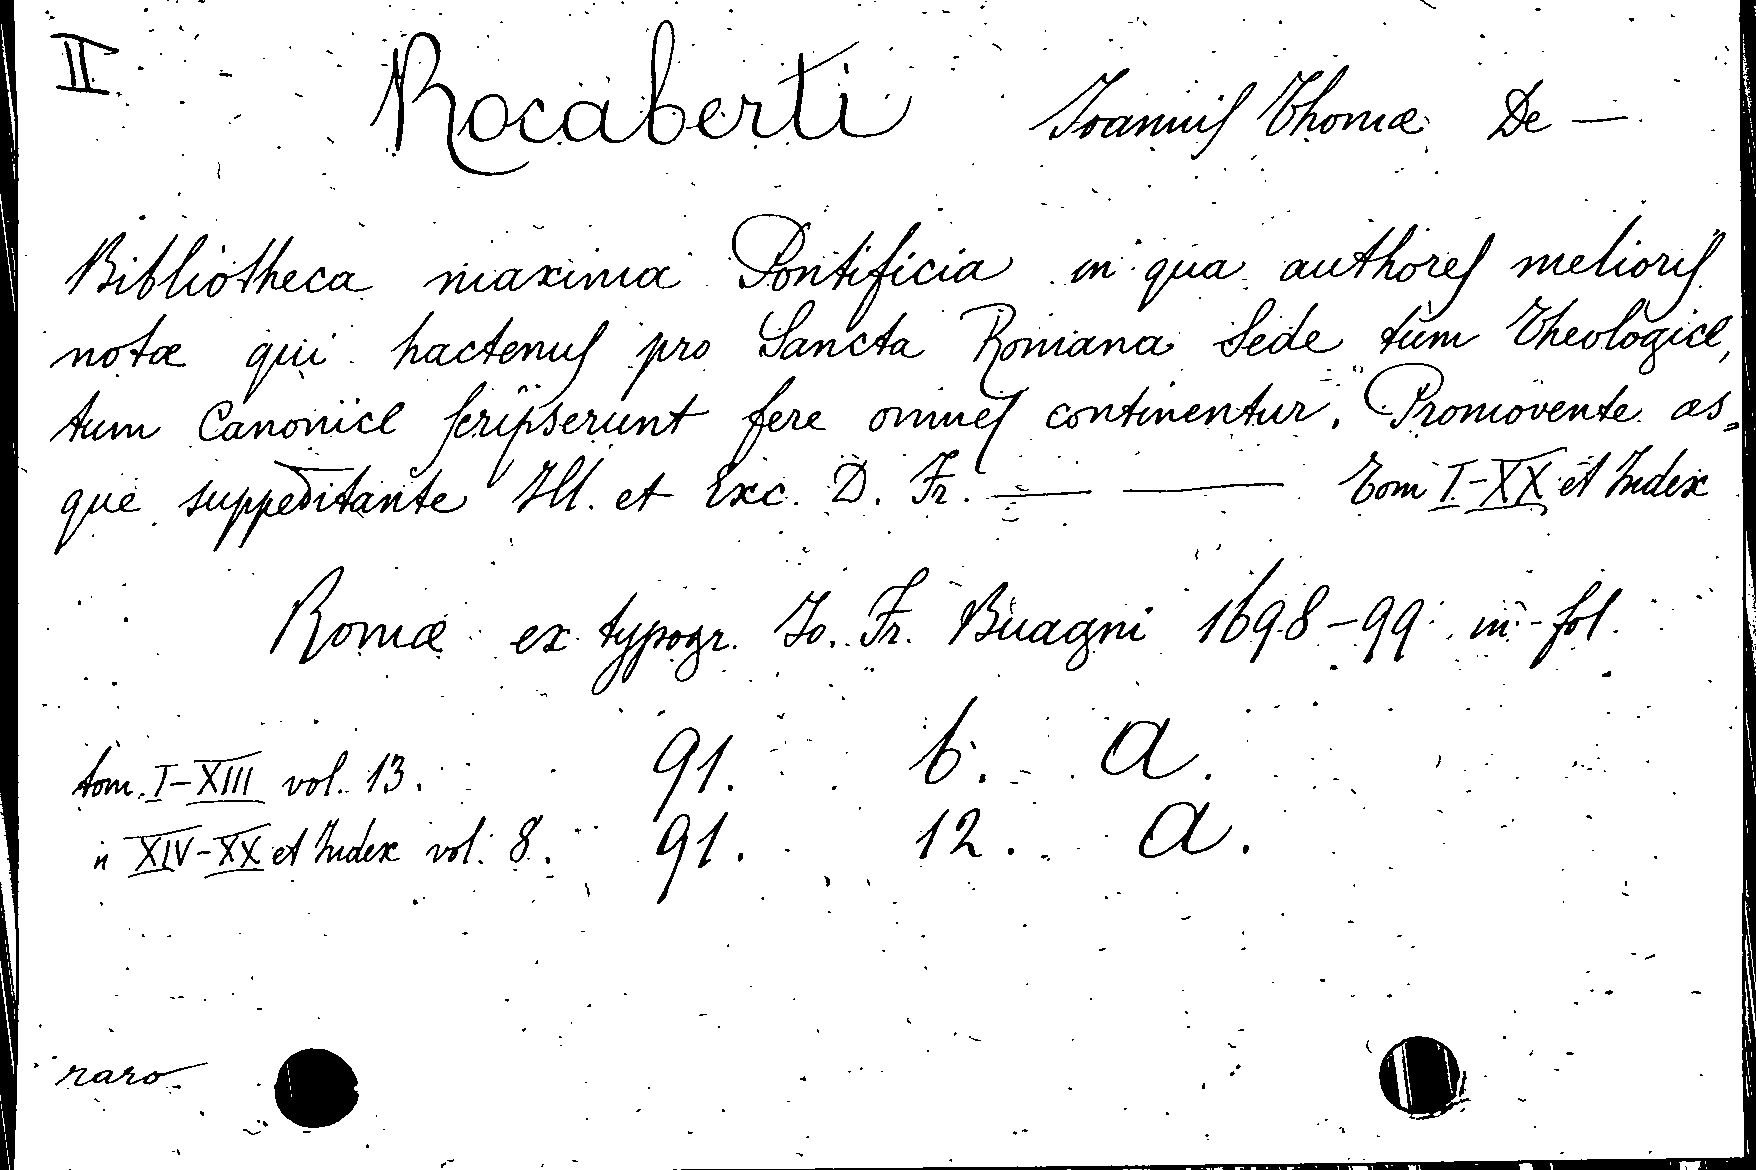 II
Rocaberti Joannis Thomæ De —
Bibliotheca maxima Pontificia in qua authores melioris
notæ qui hactenus pro Sancta Romana Sede tum Theologice,
tum Canonice scripserunt fere omnes continentur. Promovente æs,
que suppeditante Ill. et Exc. D. Fr. — — Tom I-XX et Index
Romæ ex typogr. Jo. Fr. Buagni 1698-99 in-fol.
tom. I-XIII vol. 13. 91. 6. a.
" XIV-XX et Index vol. 8. 91. 12. a.
raro